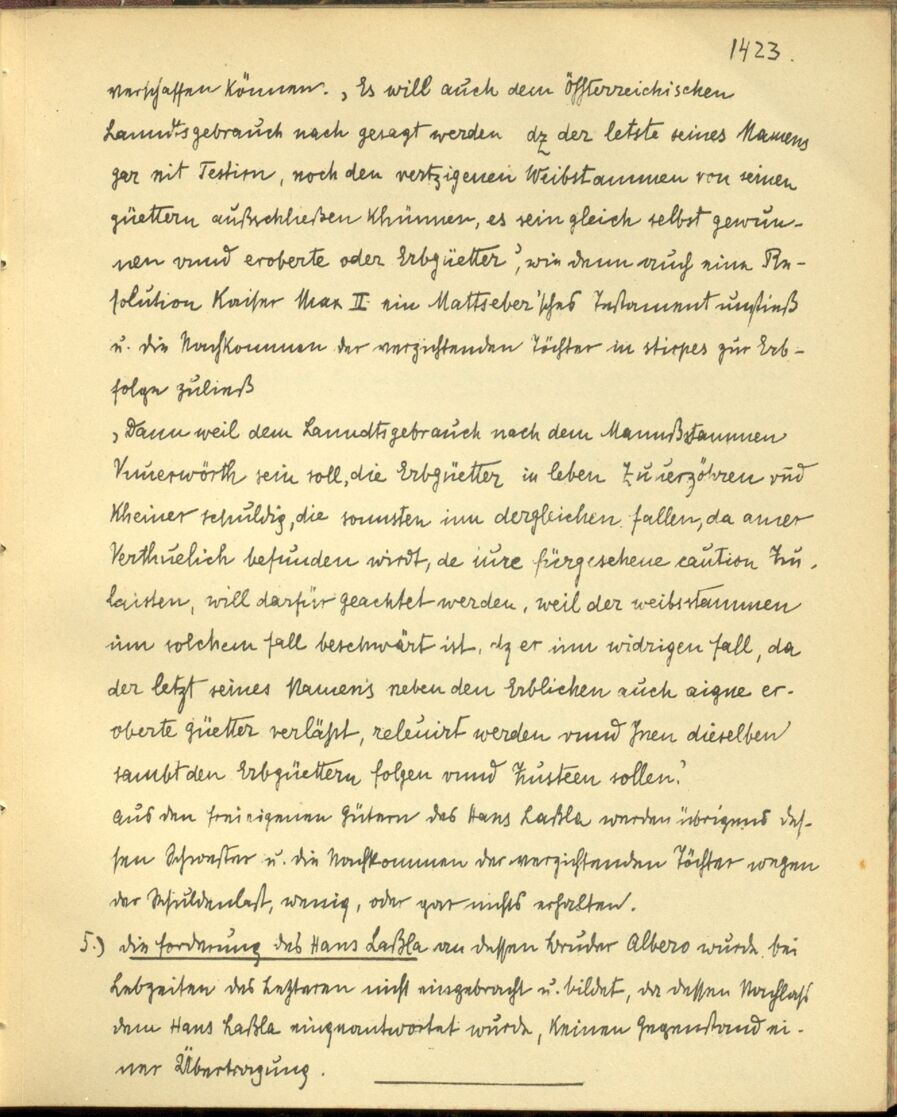 1423.
verschaffen können. „Es will auch dem Össterreichischen
Lanndtsgebrauch nach gesagt werden dz der letste seines Namens
gar nit Testirn, noch den vertzigenen Weibstammen von seinen
güettern außschließen khünnen, es sein gleich selbst gewun-
nen vnnd eroberte oder Erbgüetter‟, wie denn auch eine Re-
solution Kaiser Max II. ein Mattseber'sches Testament umstieß
u. die Nachkommen der verzichtenden Töchter in stirpes zur Erb-
folge zuließ
„Dann weil dem Lanndtsgebrauch nach dem Mannßstammen
Vnuerwörth sein soll, die Erbgüetter in leben Zuuerzöhren vnd
kheiner schuldig, die sonnsten inn dergleichen fallen, da ainer
Verthuelich befunden wirdt, de iure fürgesehene caution Zu-
laisten, will darfür geachtet werden, weil der weibsstammen
inn solchem fall beschwärt ist, dz er inn widrigen fall, da
der letzt seines Namens neben den Erblichen auch aigne er-
oberte güetter verläßt, releuirt werden vnnd Jnen dieselben
sambt den Erbgüettern folgen vnnd Zusteen sollen.‟
Aus den freieigenen Gütern des Hans Laßla werden übrigens des-
sen Schwester u. die Nachkommen der verzichtenden Töchter wegen
der Schuldenlast, wenig, oder gar nichts erhalten.
5.) die Forderung des Hans Laßla an dessen Bruder Albero wurde bei
Lebzeiten des Letzteren nicht eingebracht u. bildet, da dessen Nachlaß
dem Hans Laßla eingeantwortet wurde, keinen Gegenstand ei-
ner Übertragung.